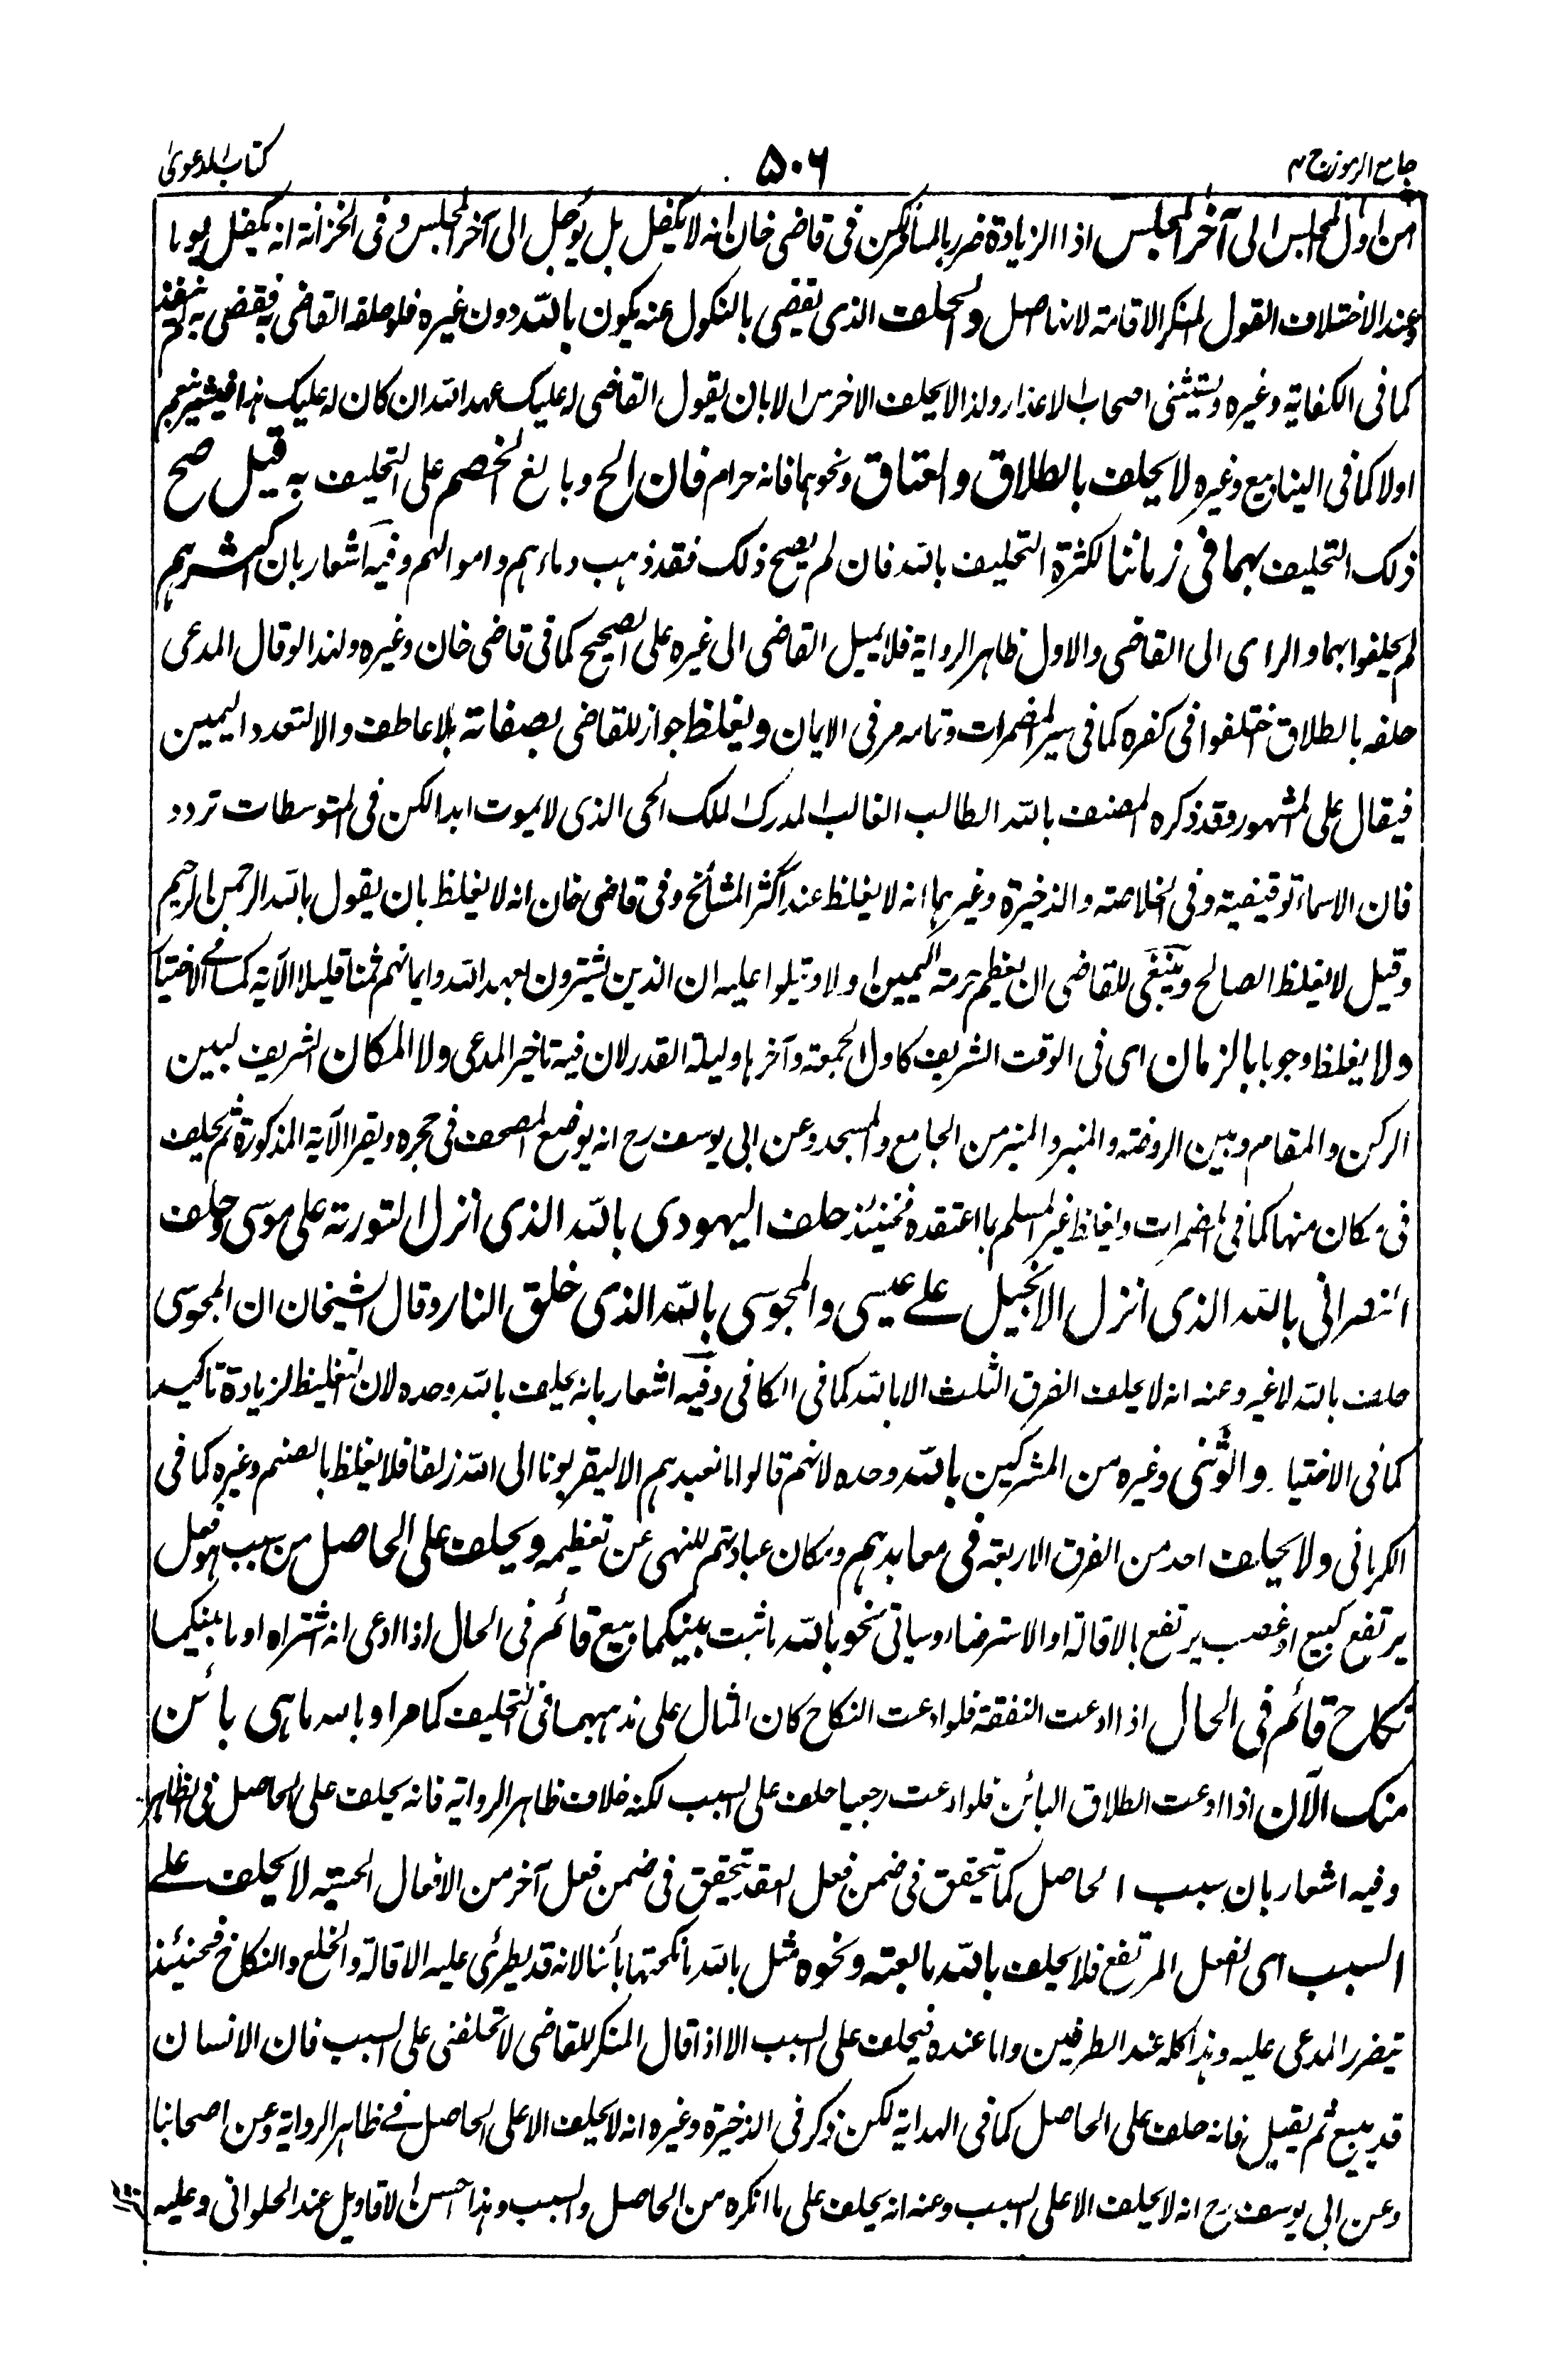 جامع الرموز ج ۲
۵۰۶
كتاب الدعوى
من اول المجلس الى آخر المجلس اذ الزيادة ضرر بالمسافر لكن فى قاضى خان انه لا يكفل بل يؤجل الى آخر المجلس وفى الخزانة انه يكفل يوما
وعند الاختلاف القول لمنكر الاقامة لانها اصل والحلف الذى يقضى بالنكول عنه يكون بالله دون غيره فلو حلفه القاضى بغيره لم
كما فى الكفاية وغيره ويستثنى اصحاب الاعذار ولذا لا يحلف الاخرس الا بان يقول القاضى له عليك عهد الله ان كان له عليك هذا فيشير بنعم
او لا كما فى الينابيع وغيره لا يحلف بالطلاق والعتاق ونحوهما فانه حرام فان الح وبالغ الخصم على التحليف به قيل صح
ذلك التحليف بهما فى زماننا لكثرة التحليف بالله فان لم يصح ذلك فقد ذهب دماءهم واموالهم وفيه اشعار بان اكثرهم
لم يحلفوا بهما والراى الى القاضى والاول ظاهر الرواية فلا يميل القاضى الى غيره على الصحيح كما فى قاضى خان وغيره ولهذا لو قال المدعى
حلفه بالطلاق اختلفوا فى كفره كما فى سير المضمرات وتمامه مر فى الايمان ويغلظ جواز للقاضى بصفاته بلا عاطف والا لتعدد اليمين
فيقال على المشهور وقد ذكره المصنف بالله الطالب الغالب المدرك الملك الحى الذى لا يموت ابدا لكن فى المتوسطات تردد
فان الاسماء توقيفية وفى الخلاصة والذخيرة وغيرهما انه لا يغلظ عند اكثر المشائخ وفى قاضى خان انه لا يغلظ بان يقول بالله الرحمن الرحيم
وقيل لا يغلظ الصالح وينبغى للقاضى ان يعظم حرمة اليمين اولا ويتلوا عليه ان الذين يشترون بعهد الله وايمانهم ثمنا قليلا الآية كما فى الاختيار
ولا يغلظ وجوبا بالزمان اى فى الوقت الشريف كاول الجمعة وآخرها وليلة القدر لان فيه تاخير المدعى ولا المكان الشريف لبين
الركن والمقام وبين الروضة والمنبر والمنبر من الجامع والمسجد وعن ابى يوسف رح انه يوضع المصحف فى حجره ويقرا الآية المذكورة ثم يحلف
فى مكان منها كما فى المضمرات ويغلظ غير المسلم بما اعتقده فحينئذ حلف اليهودى بالله الذى انزل التورية على موسى وحلف
النصرانى بالله الذى انزل الانجيل على عيسى والمجوسى بالله الذى خلق النار وقال الشيخان ان المجوسى
حلف بالله لا غير وعنه انه لا يحلف الفرق الثلث الا بالله كما فى الكافى وفيه اشعار بانه يحلف بالله وحده لان التغليظ لزيادة تاكيد
كما فى الاختيار والوثنى وغيره من المشركين بالله وحده لانهم قالوا ما نعبدهم الا ليقربونا الى الله زلفا فلا يغلظ بالصنم وغيره كما فى
الكرمانى ولا يحلف احد من الفرق الاربعة فى معابدهم ومكان عبادتهم للنهى عن تعظيمه ويحلف على الحاصل من سبب هو فعل
يرتفع كبيع او غصب يرتفع بالاقالة او الاسترضاء وسياتى نحو بالله ما ثبت بينكما بيع قائم فى الحال اذا ادعى انه اشتراه او ما بينكما
نكاح قائم فى الحال اذا ادعت النفقة فلو ادعت النكاح كان المثال على مذهبهما فى التحليف كما مر او بالله ما هى بائن
منك الآن اذا ادعت الطلاق البائن فلو ادعت رجعيا حلف على السبب لكنه خلاف ظاهر الرواية فانه يحلف على الحاصل فى الظاهر
وفيه اشعار بان سبب الحاصل كما تحقق فى ضمن فعل العقد يتحقق فى ضمن فعل آخر من الافعال الحسية لا يحلف على
السبب اى الفعل المرتفع فلا يحلف بالله ما بعته ونحوه مثل بالله ما نكحتها بائنا لانه قد يطرئ عليه الاقالة والخلع والنكاح فحينئذ
يتضرر المدعى عليه وهذا كله عند الطرفين واما عنده فيحلف على السبب الا اذا قال المنكر للقاضى لا تحلفنى على السبب فان الانسان
قد يبيع ثم يقيل فانه حلف على الحاصل كما فى الهداية لكن ذكر فى الذخيرة وغيره انه لا يحلف الا على الحاصل فى ظاهر الرواية وعن اصحابنا
وعن ابى يوسف رح انه لا يحلف الا على السبب وعنه انه يحلف على ما انكره من الحاصل والسبب وهذا احسن الاقاويل عند الحلوانى وعليه